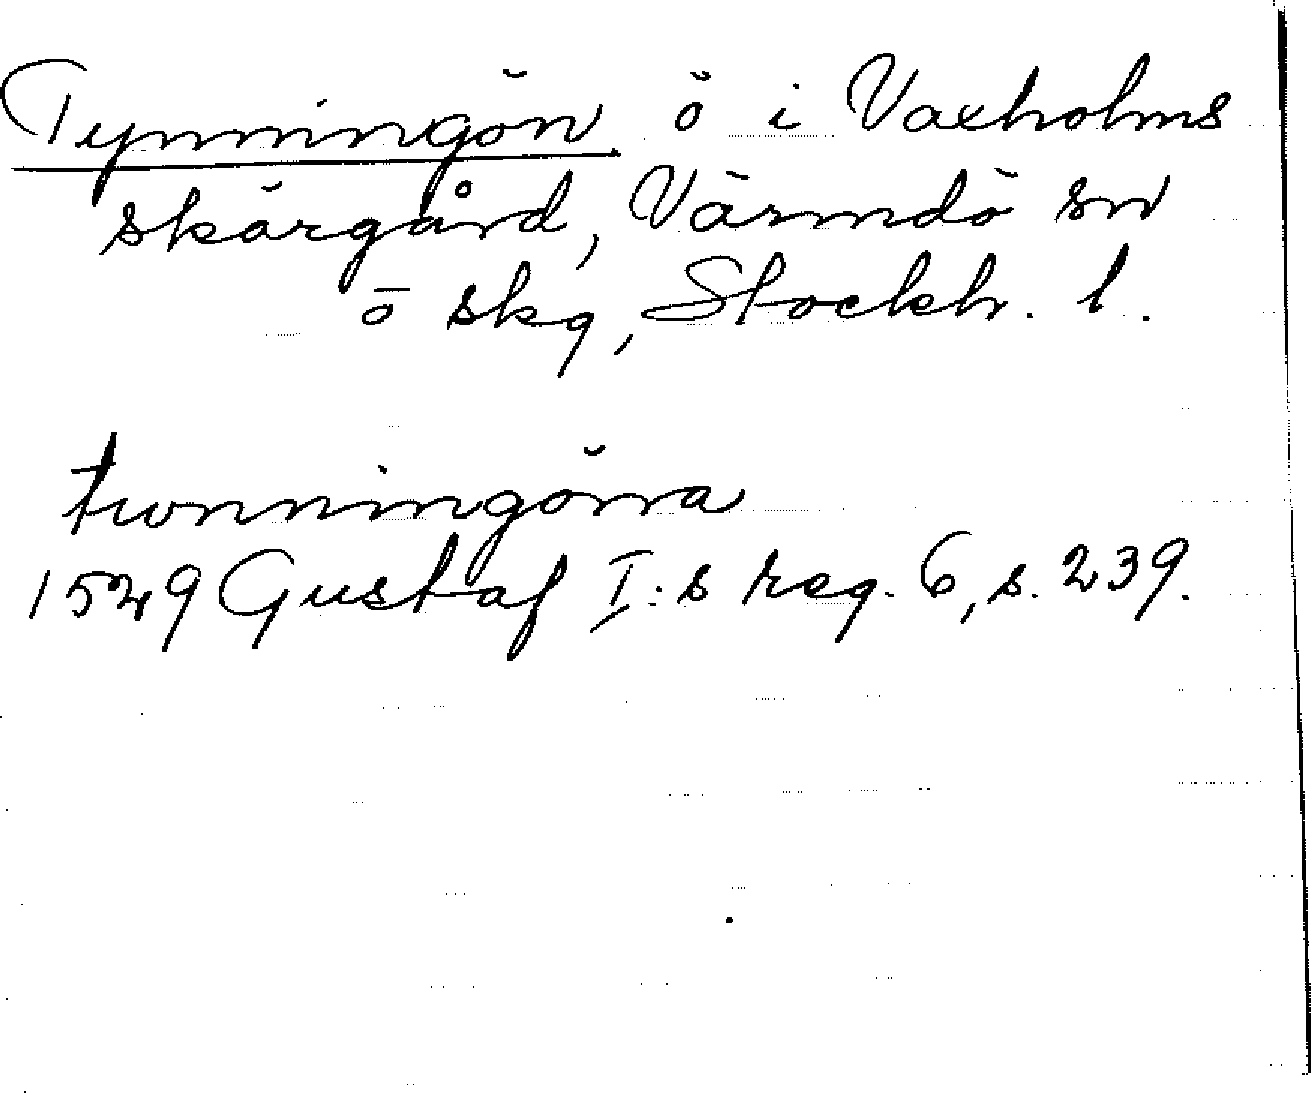 Tynningön ö i Vaxholms
skärgård, Värmdö sn
o skg, Stockh. l.
tunningöna
1549 Gustaf I:s reg. 6, s. 239.